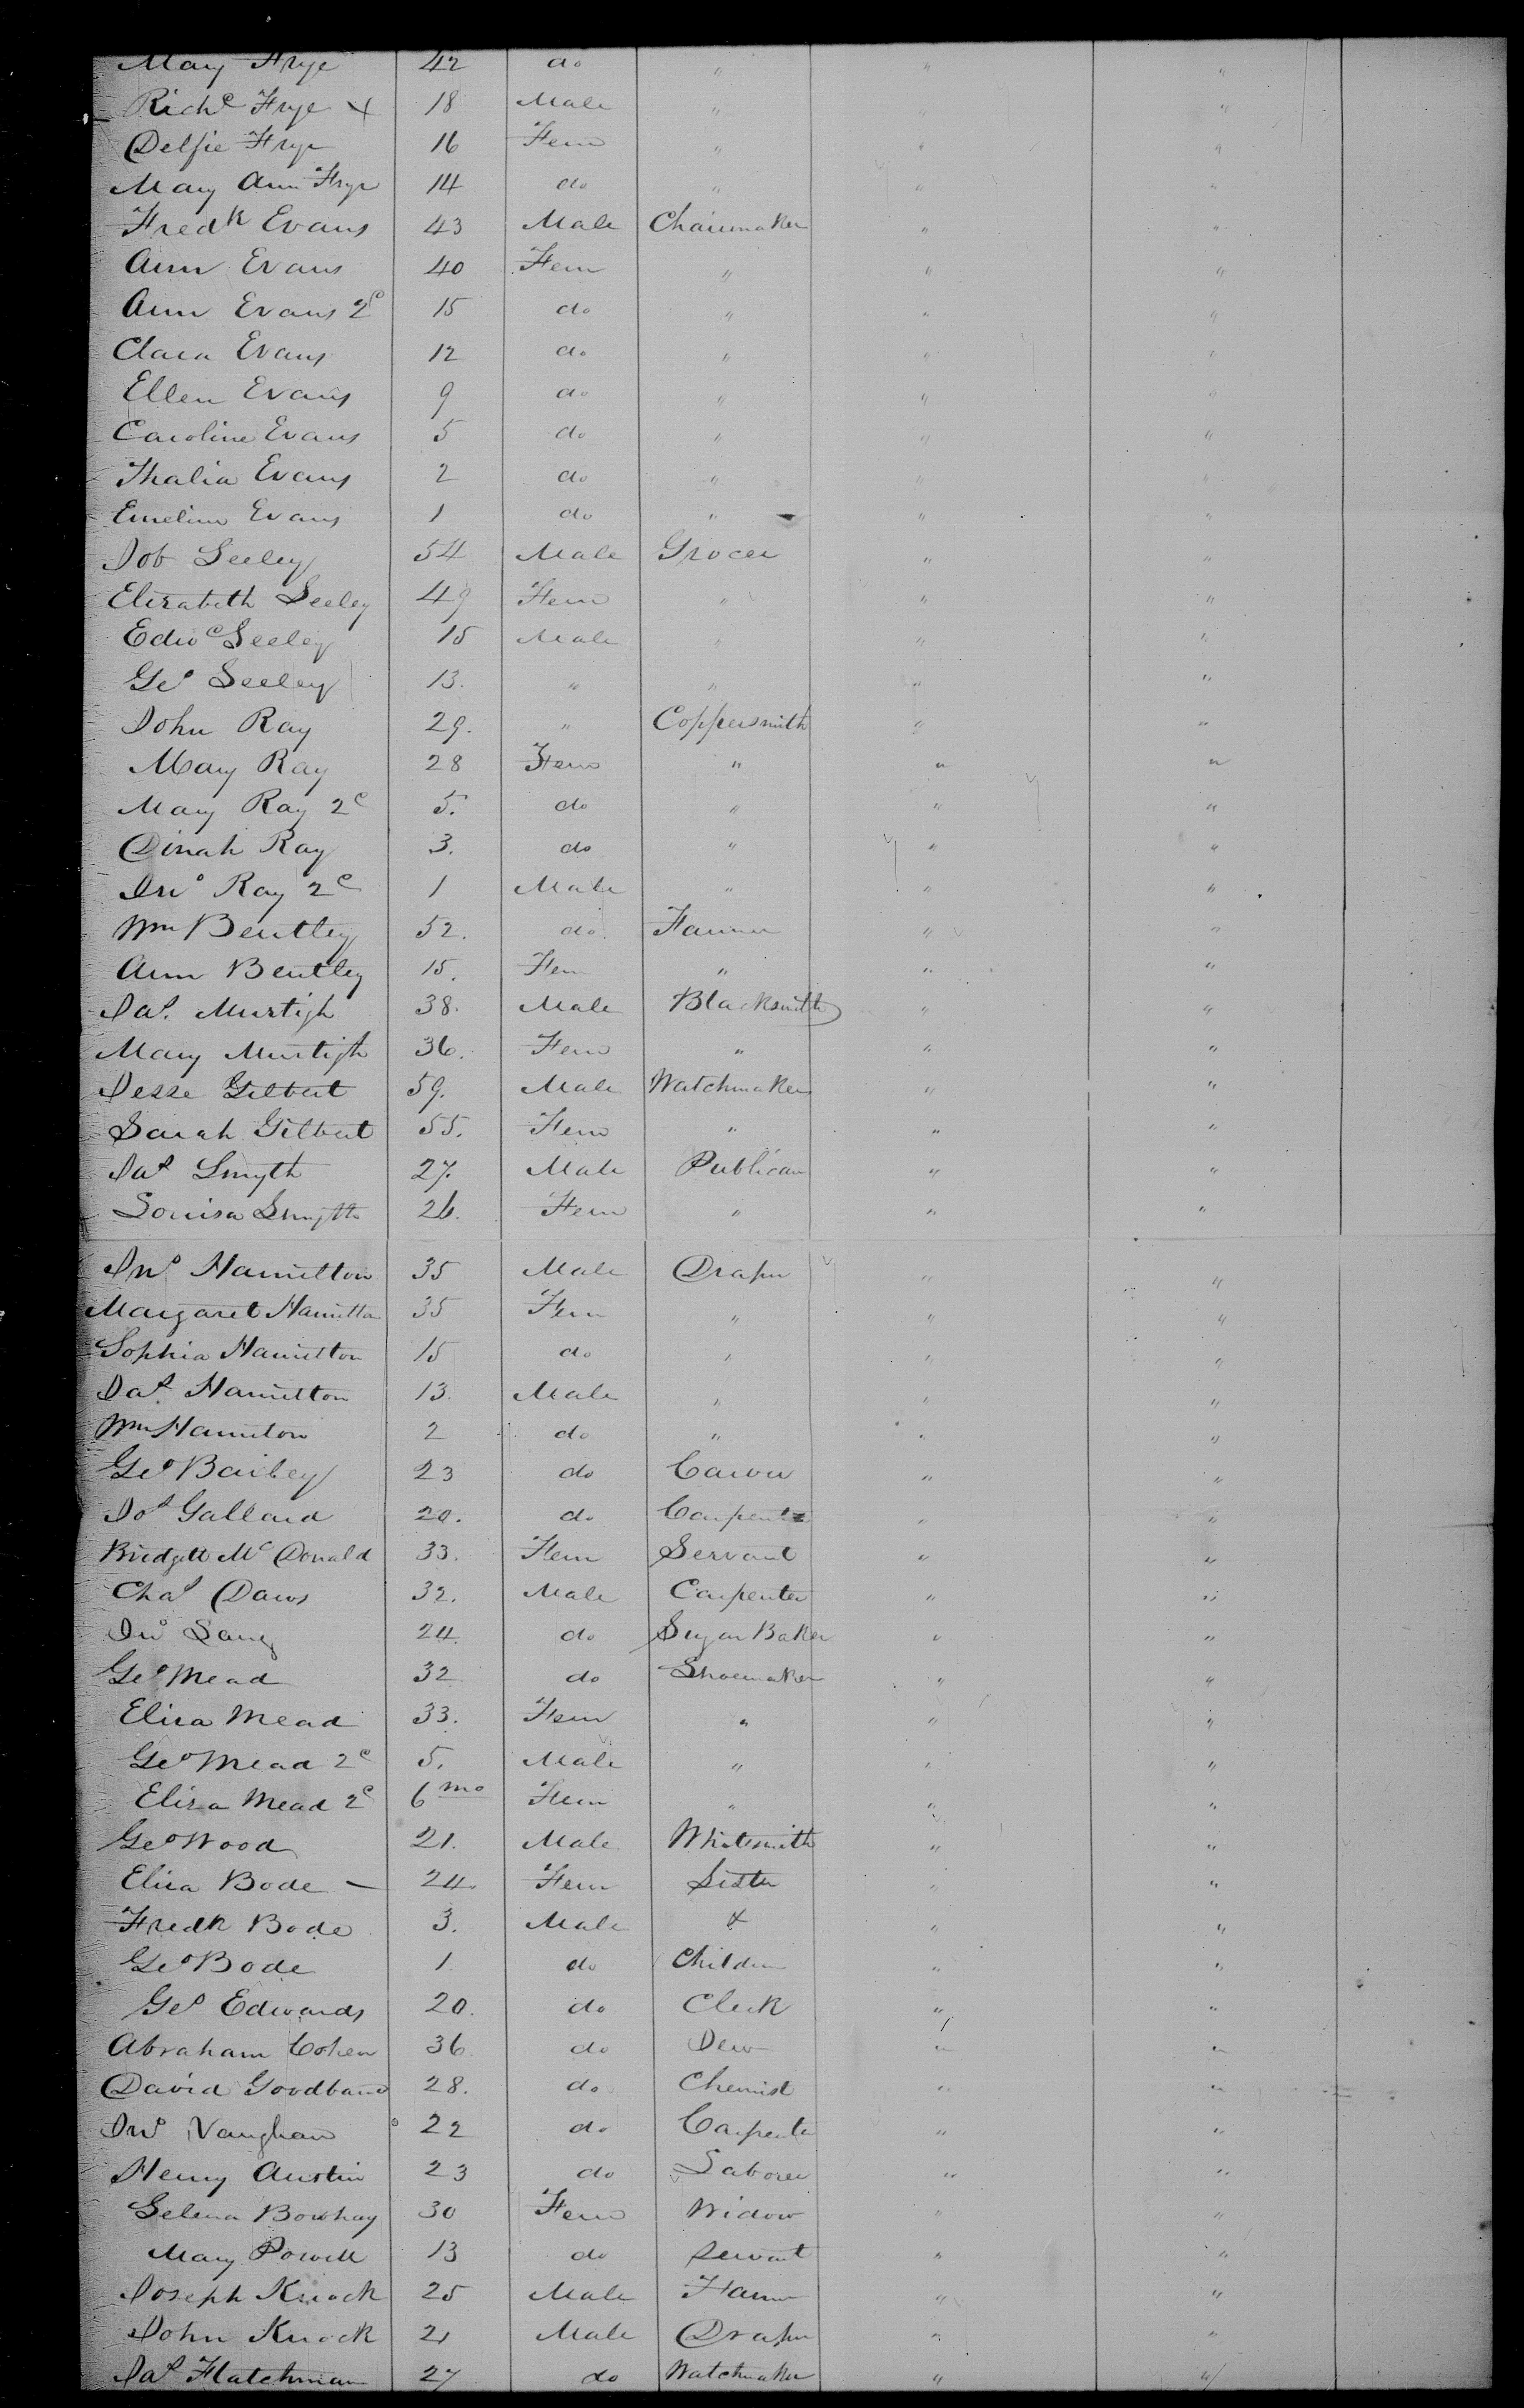 Mary Frye 42 do " " "
Richd Frye x 18 Male " " "
Delfie Frye 16 Fem " " "
Mary Ann Frye 14 do " " "
Fredk Evans 43 Male Chairmaker " "
Ann Evans 40 Fem " " "
Ann Evans 2d 15 do " " "
Clara Evans 12 do " " "
Ellen Evans 9 do " " "
Caroline Evans 5 do " " "
Thalia Evans 2 do " " "
Emeline Evans 1 do " " "
Job Seeley 54 Male Grocer " "
Elizabeth Seeley 49 Fem " " "
Edwd Seeley 15 Male " " "
Geo Seeley 13. " " " "
John Ray 29. " Coppersmith " "
Mary Ray 28 Fem " " "
Mary Ray 2d 5. do " " "
Dinah Ray 3. do " " "
Jno Ray 2d 1 Male " " "
Wm Bentley 52. do Farmer " "
Ann Bentley 15. Fem " " "
Jas. Murtigh 38. Male Blacksmith " "
Mary Murtigh 36. Fem " " "
Jesse Gilbert 59. Male Watchmaker " "
Sarah Gilbert 55. Fem " " "
Jas Smyth 27. Male Publican " "
Louisa Smyth 26. Fem " " "
Jno Hamilton 35 Male Draper " "
Margaret Hamilton 35 Fem " " "
Sophia Hamilton 15 do " " "
Jas Hamilton 13. Male " " "
Wm Hamilton 2 do " " "
Geo Bailey 23 do Carver " "
Jos Gallard 20. do Carpenter " "
Bridgett McDonald 33. Fem Servant " "
Chas Daws 32. Male Carpenter " "
Jno Lang 24. do Sugar Baker " "
Geo Mead 32 do Shoemaker " "
Eliza Mead 33. Fem " " "
Geo Mead 2d 5. Male " " "
Eliza Mead 2d 6 mo Fem " " "
Geo Wood 21. Male Whitesmith " "
Eliza Bode — 24. Fem Sister " "
Fredk Bode 3. Male & " "
Geo Bode 1. do Children " "
Geo Edwards 20. do Clerk " "
Abraham Cohen 36. do Jew " "
David Goodband 28. do Chemist " "
Jno Vaughan 22 do Carpenter " "
Henry Austin 23 do Laborer " "
Selena Bowhay 30 Fem Widow " "
Mary Powell 13 do Servant " "
Joseph Knock 25 Male Farmer " "
John Knock 21 Male Draper " "
Jas Flatchman 27 do Watchmaker " "